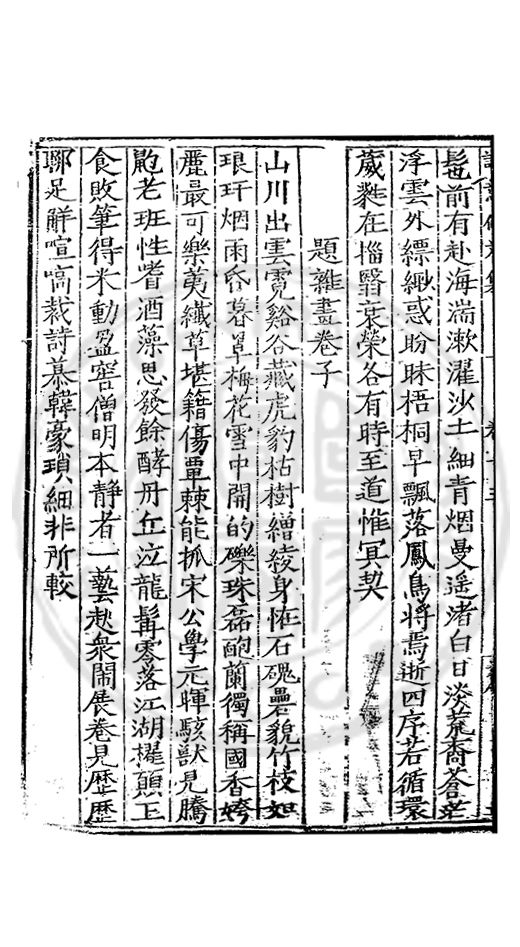 髢前有赴海湍漱濯沙土細青烟曼遥渚白日淡荒裔蒼茫
浮雲外縹緲惑盼昧梧桐早飄落鳳鳥將焉逝四序若循環
葳蕤在榴翳哀榮各有時至道惟冥契
題雜畫卷子
山川出雲霓谿谷藏虎豹枯樹繒綾身恠石磈礨貌竹枝如
琅玕烟雨昏暮罩梅花雪中開的礫珠磊砲蘭獨稱國香姱
麗最可樂荑纖草堪籍傷覃棘能抓宋公學元暉駭獸見騰
鼩老班性嗜酒藻思發餘酵丹丘泣龍髯零落江湖櫂顛王
食敗筆得米動盈窖僧明本靜者一藝赴衆鬧展卷見歷歷
聊足觧喧嗃裁詩慕韓豪瑣細非所較